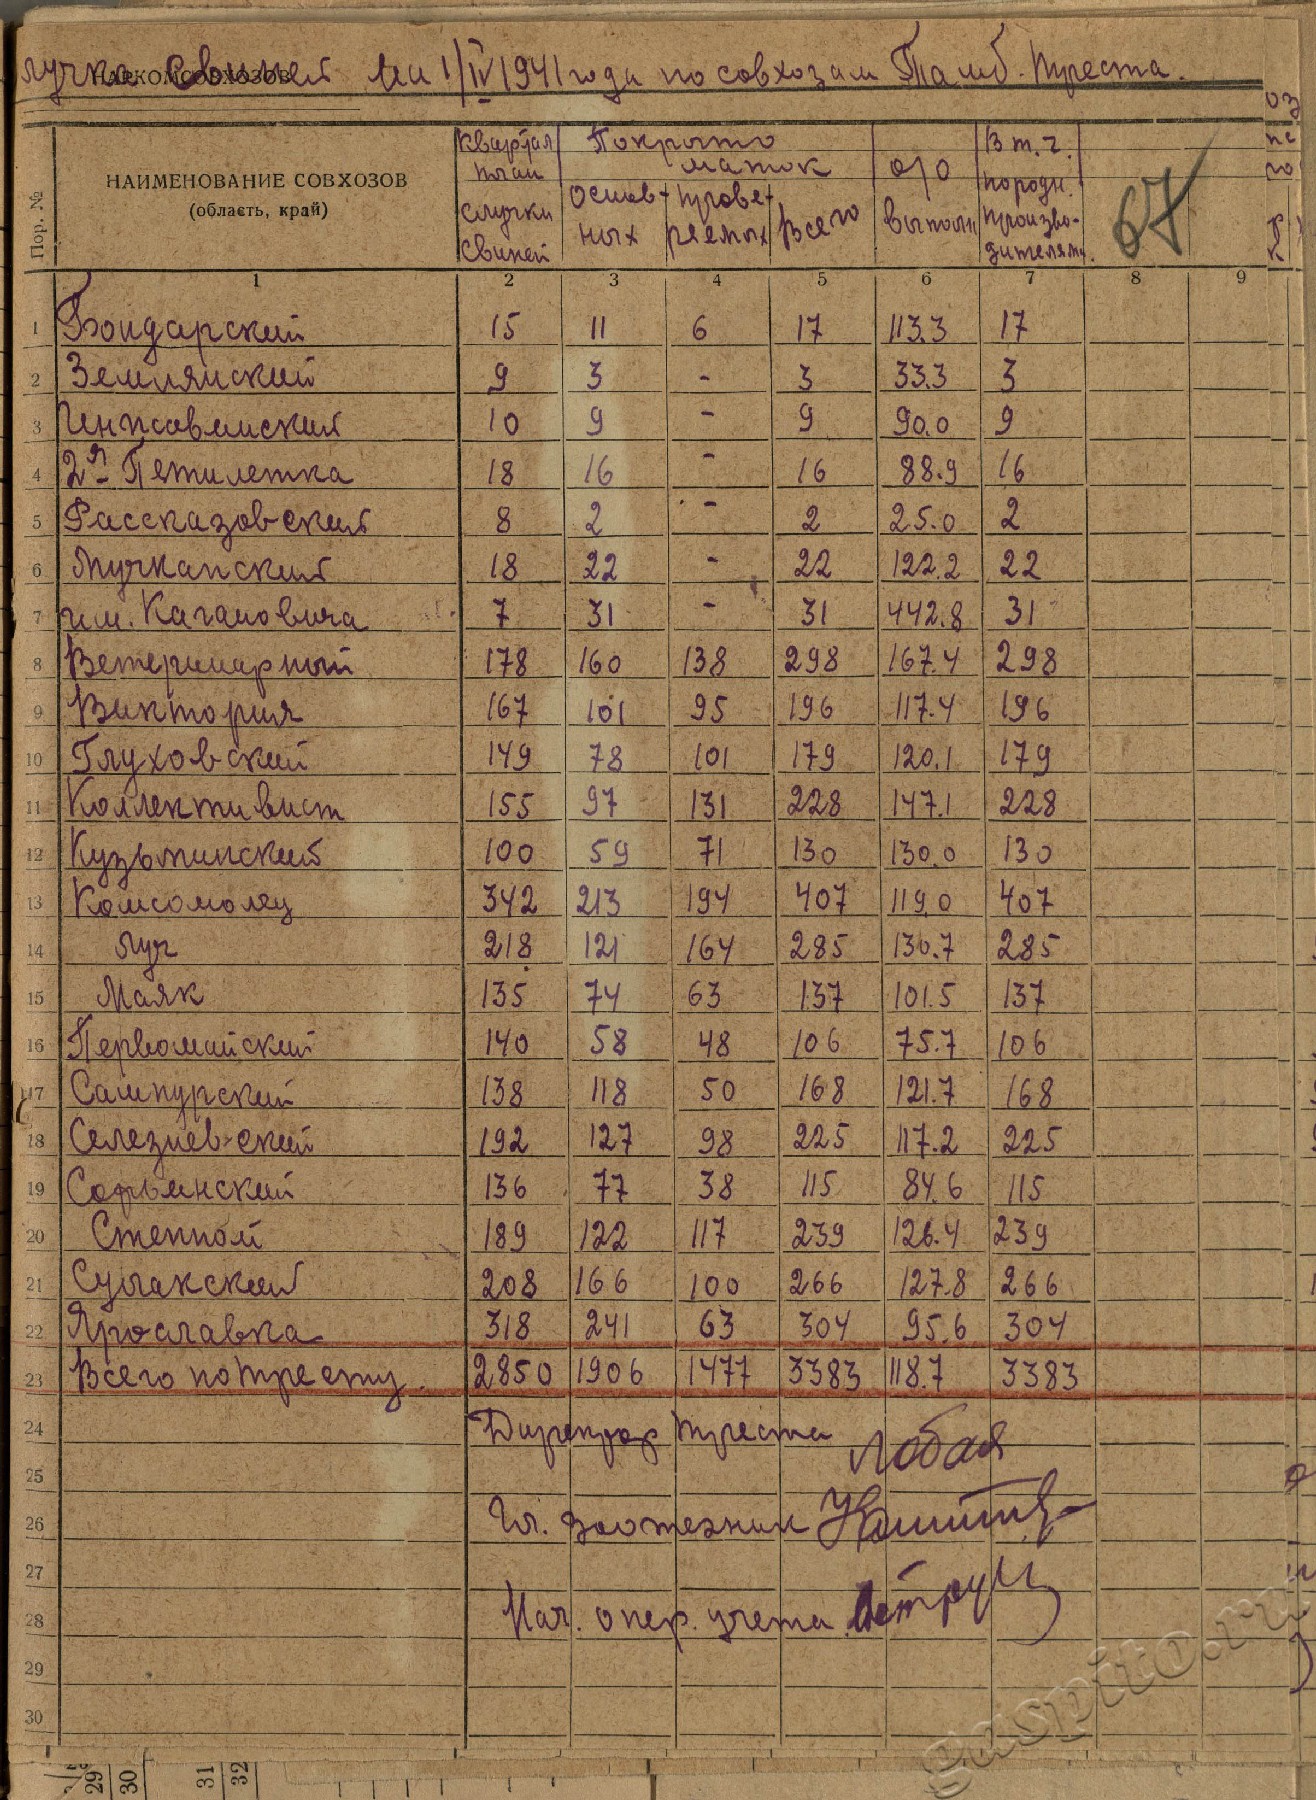 НАРКОМСОВХОЗОВ
лучка свиней на 1/IV 1941 года по совхозам Тамб. треста.
Пор. №
НАИМЕНОВАНИЕ СОВХОЗОВ
(область, край)
квартал план случки свиней
Покрыто маток
основных
проверяемых
всего
о/о выполн
В т. ч. породн. производителями.
67
1 2 3 4 5 6 7 8 9
1 Бондарский 15 11 6 17 113.3 17
2 Землянский 9 3 - 3 33.3 3
3 Инжавинский 10 9 - 9 90.0 9
4 2я Пятилетка 18 16 - 16 88.9 16
5 Рассказовский 8 2 - 2 25.0 2
6 Мучкапский 18 22 - 22 122.2 22
7 им. Кагановича 7 31 - 31 442.8 31
8 Ветеринарный 178 160 138 298 167.4 298
9 Виктория 167 101 95 196 117.4 196
10 Глуховский 149 78 101 179 120.1 179
11 Коллективист 155 97 131 228 147.1 228
12 Кузьминский 100 59 71 130 130.0 130
13 Комсомолец 342 213 194 407 119.0 407
14 Луч 218 121 164 285 130.7 285
15 Маяк 135 74 63 137 101.5 137
16 Первомайский 140 58 48 106 75.7 106
17 Сампурский 138 118 50 168 121.7 168
18 Селезневский 192 127 98 225 117.2 225
19 Софьинский 136 77 38 115 84.6 115
20 Степной 189 122 117 239 126.4 239
21 Сулакский 208 166 100 266 127.8 266
22 Ярославка 318 241 63 304 95.6 304
23 Всего по тресту. 2850 1906 1477 3383 118.7 3383
24 Директор треста Лобая
25
26 Гл. зоотехник
27
28 Нач. опер. учета
29
30
29 30 31 32
gaspito.ru